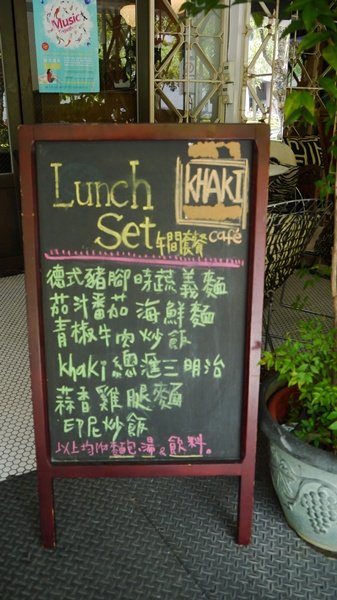 Music
Lunch
Set 午間套餐
KHAKI
café
德式豬腳時蔬義麵
茄汁番茄海鮮麵
青椒牛肉炒飯
khaki 總滙三明治
蒜香雞腿麵
印尼炒飯
以上均附麵包.湯&飲料。